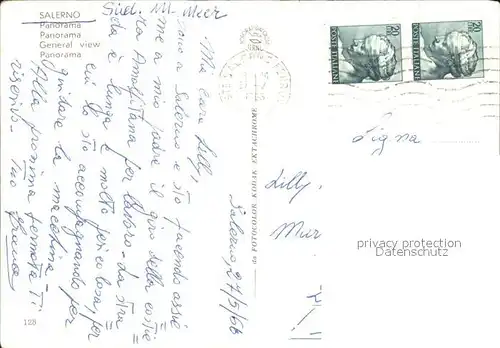 SALERNO
Panorama
Panorama
General view
Panorama
Süd. It. Meer
Mia cara Lilly,
sono a Salerno e sto facendo assie
me a mio padre il giro della costie
ra Amalfitana per lavoro. La stra
da è lunga e molto pericolosa, per
cui lo sto accompagnando per
guidare la macchina.
Alla prossima fermata Ti
riscrivo. Tuo
Salerno, 27/5/66
128
POSTE ITALIANE
20
POSTE ITALIANE
20
Sig.na
Lilly
Mur
privacy protection
Datenschutz